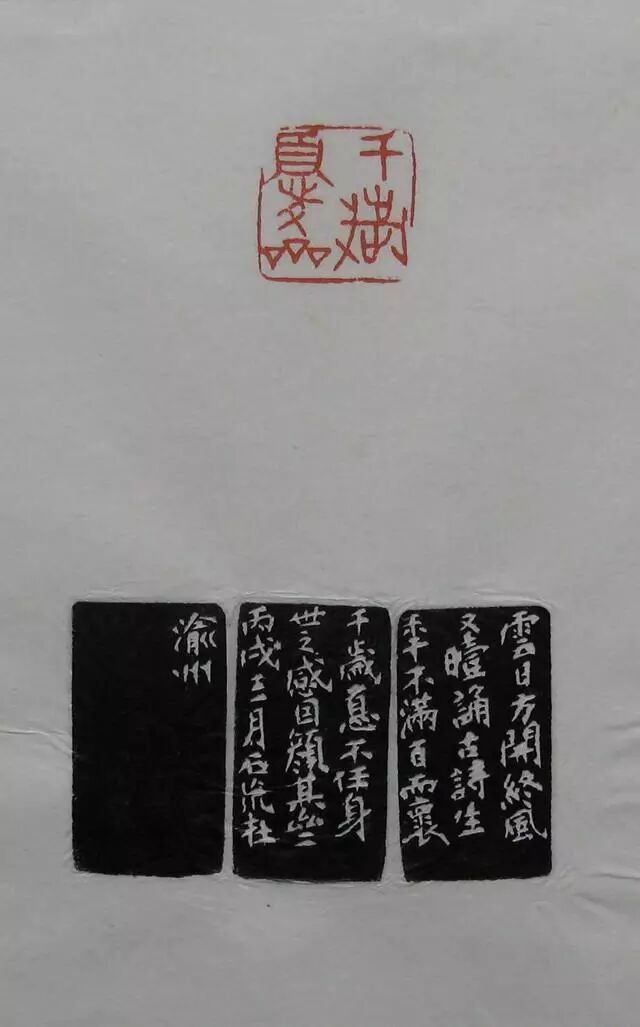 千歲
雲日方開終風
又曀誦古詩生
年不滿百而褱
千歲憂不任身
世之感因其
丙戌三月石流
渝州